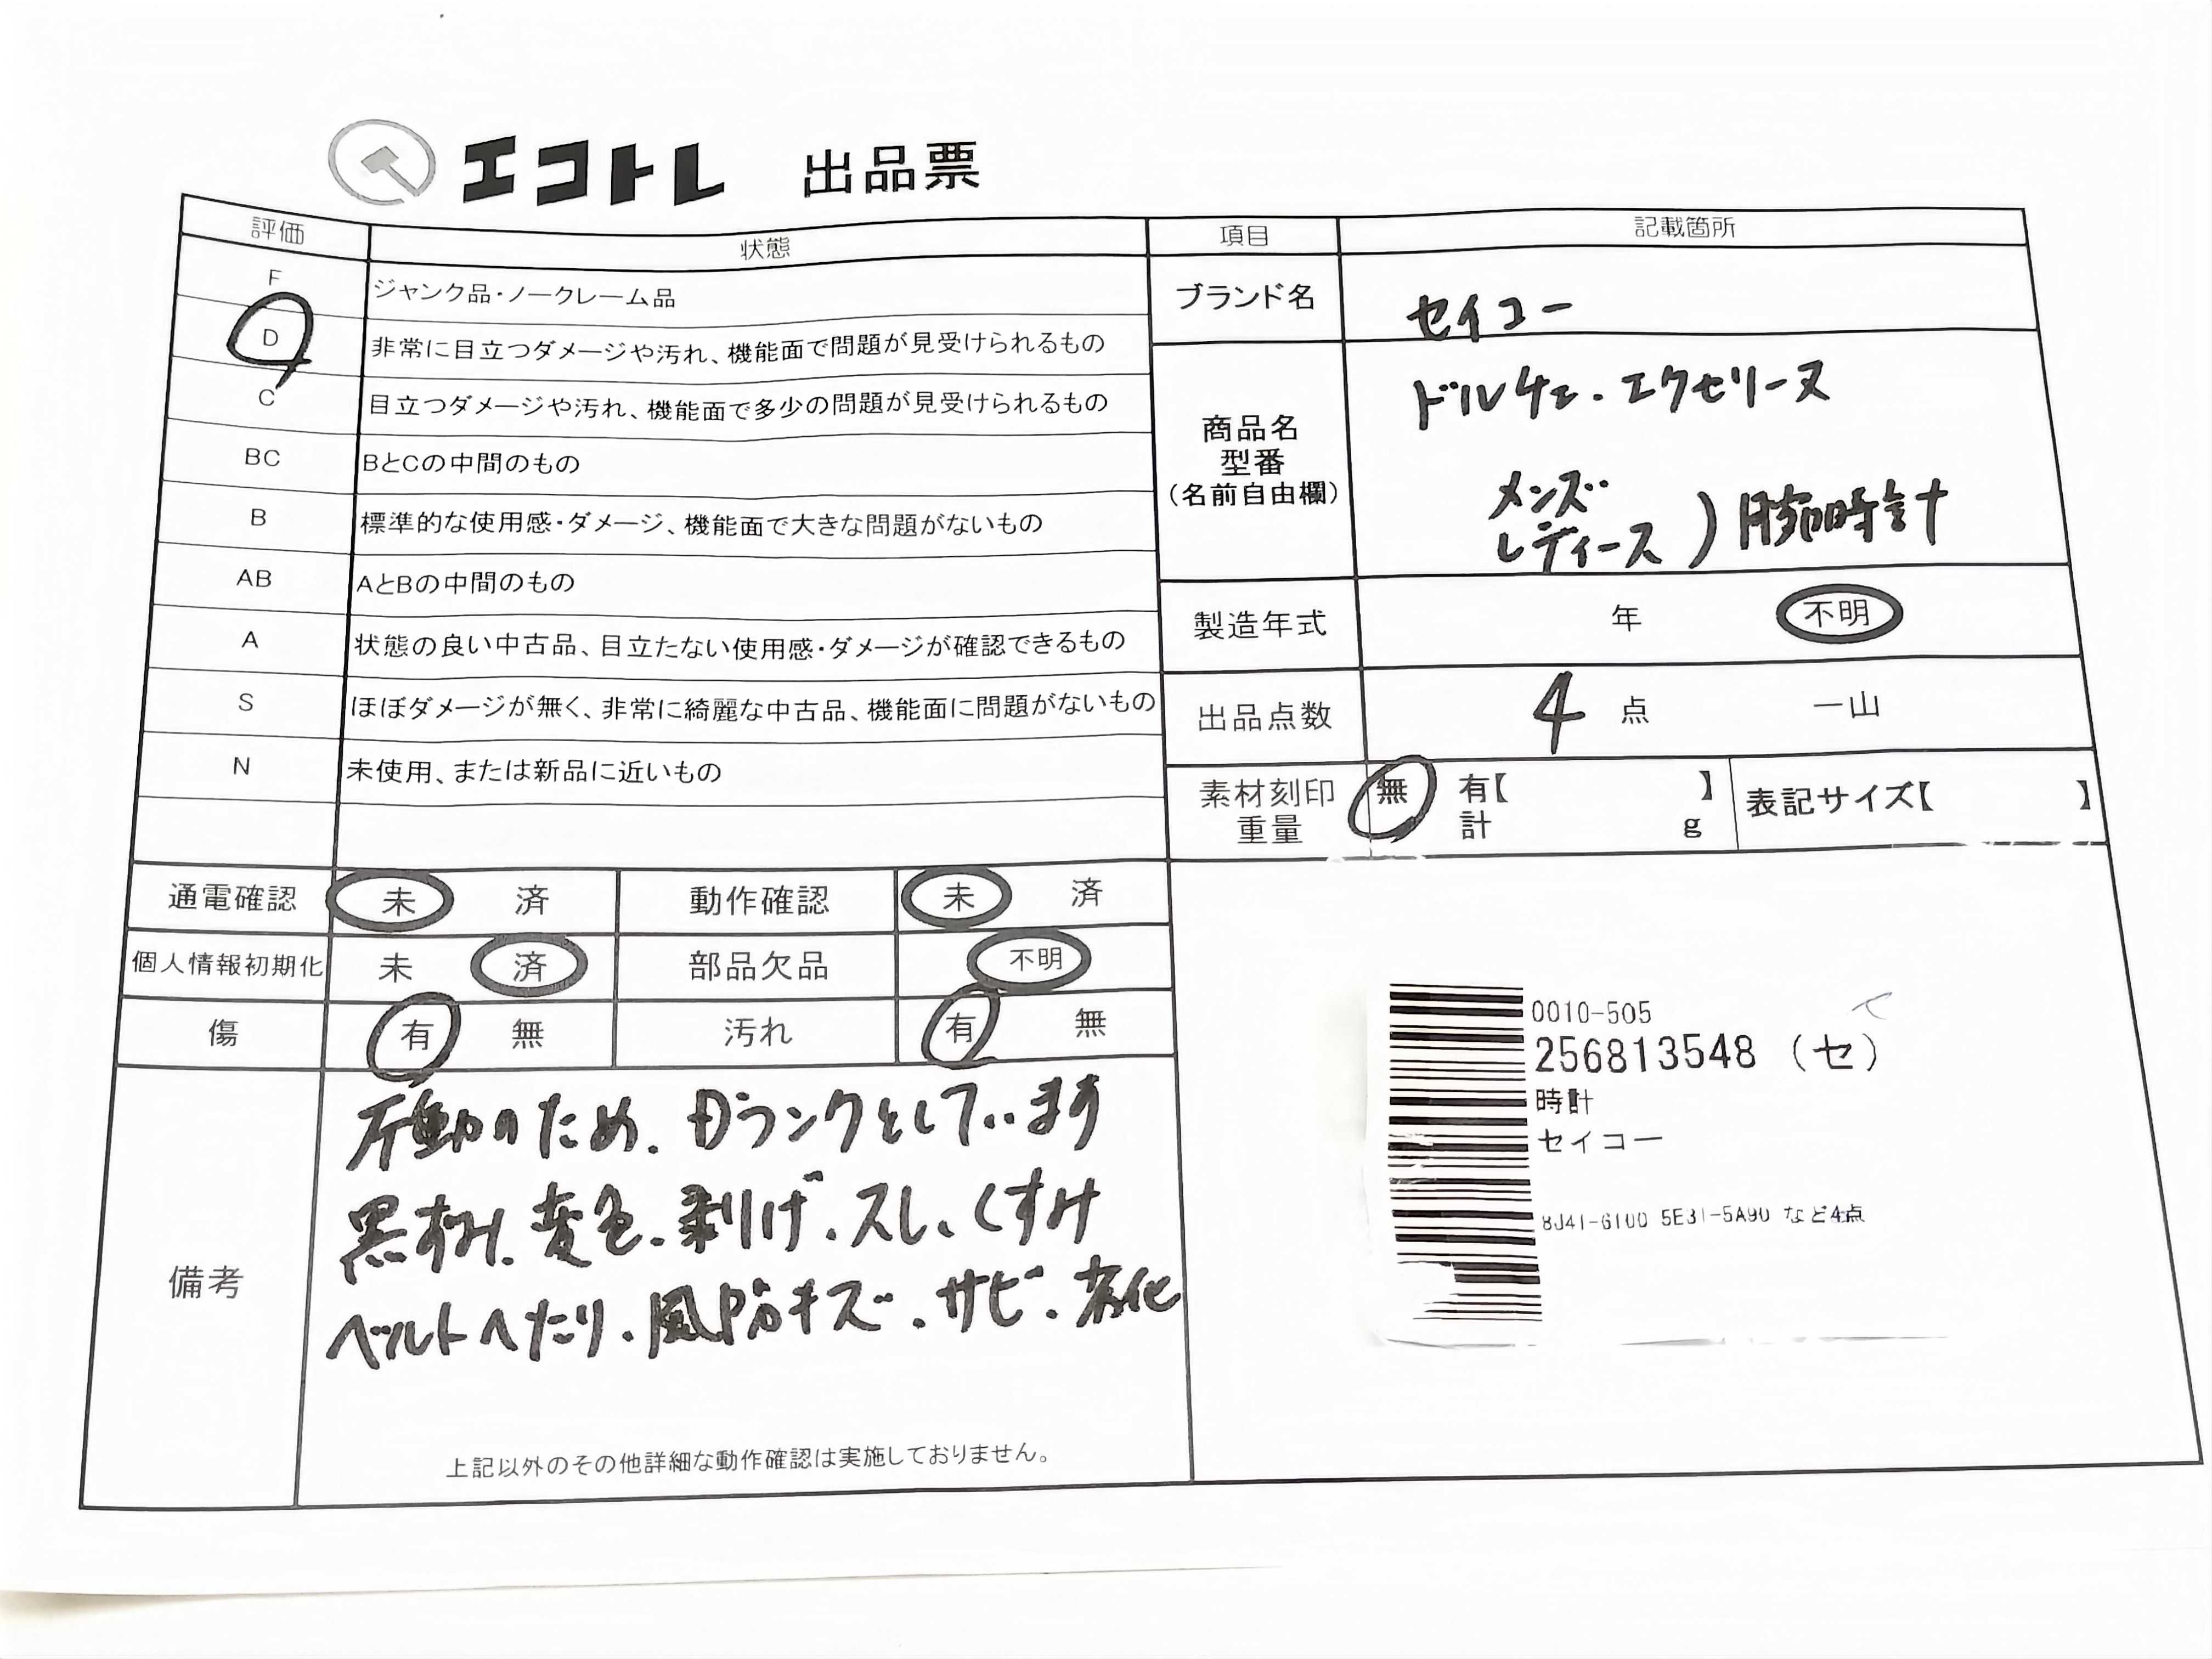 エコトレ 出品票
評価 状態
F ジャンク品・ノークレーム品
D 非常に目立つダメージや汚れ、機能面で問題が見受けられるもの
C 目立つダメージや汚れ、機能面で多少の問題が見受けられるもの
BC BとCの中間のもの
B 標準的な使用感・ダメージ、機能面で大きな問題がないもの
AB AとBの中間のもの
A 状態の良い中古品、目立たない使用感・ダメージが確認できるもの
S ほぼダメージが無く、非常に綺麗な中古品、機能面に問題がないもの
N 未使用、または新品に近いもの
項目 記載箇所
ブランド名 セイコー
商品名
型番
(名前自由欄)
ドルチェ・エクセリーヌ
メンズ
レディース ) 腕時計
製造年式 年 不明
出品点数 4 点 一山
素材刻印 無 有【 】 表記サイズ【 】
重量 計 g
通電確認 未 済 動作確認 未 済
個人情報初期化 未 済 部品欠品 不明
傷 有 無 汚れ 有 無
備考
不動のため、Dランクとしています
黒ずみ、変色、剥げ、スレ、くすみ
ベルトへたり、風防キズ、サビ、劣化
上記以外のその他詳細な動作確認は実施しておりません。
0010-505
256813548 (セ)
時計
セイコー
8J41-6100 5E31-5A90 など4点